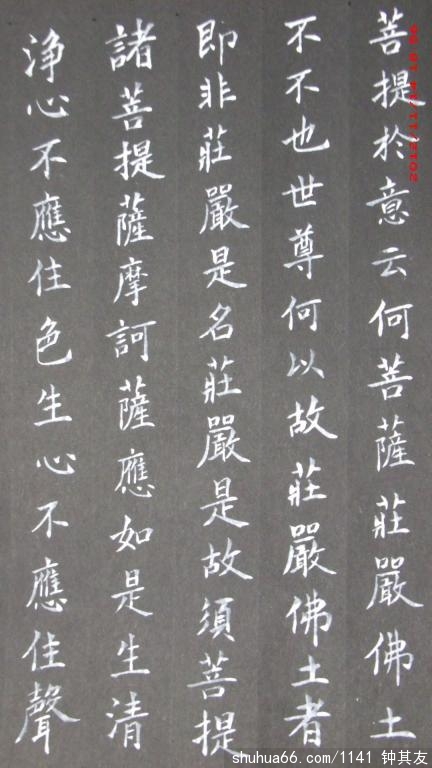 菩提於意云何菩薩莊嚴佛土
不不也世尊何以故莊嚴佛土者
即非莊嚴是名莊嚴是故須菩提
諸菩提薩摩訶薩應如是生清
淨心不應住色生心不應住聲
shuhua66.com/1141 钟其友